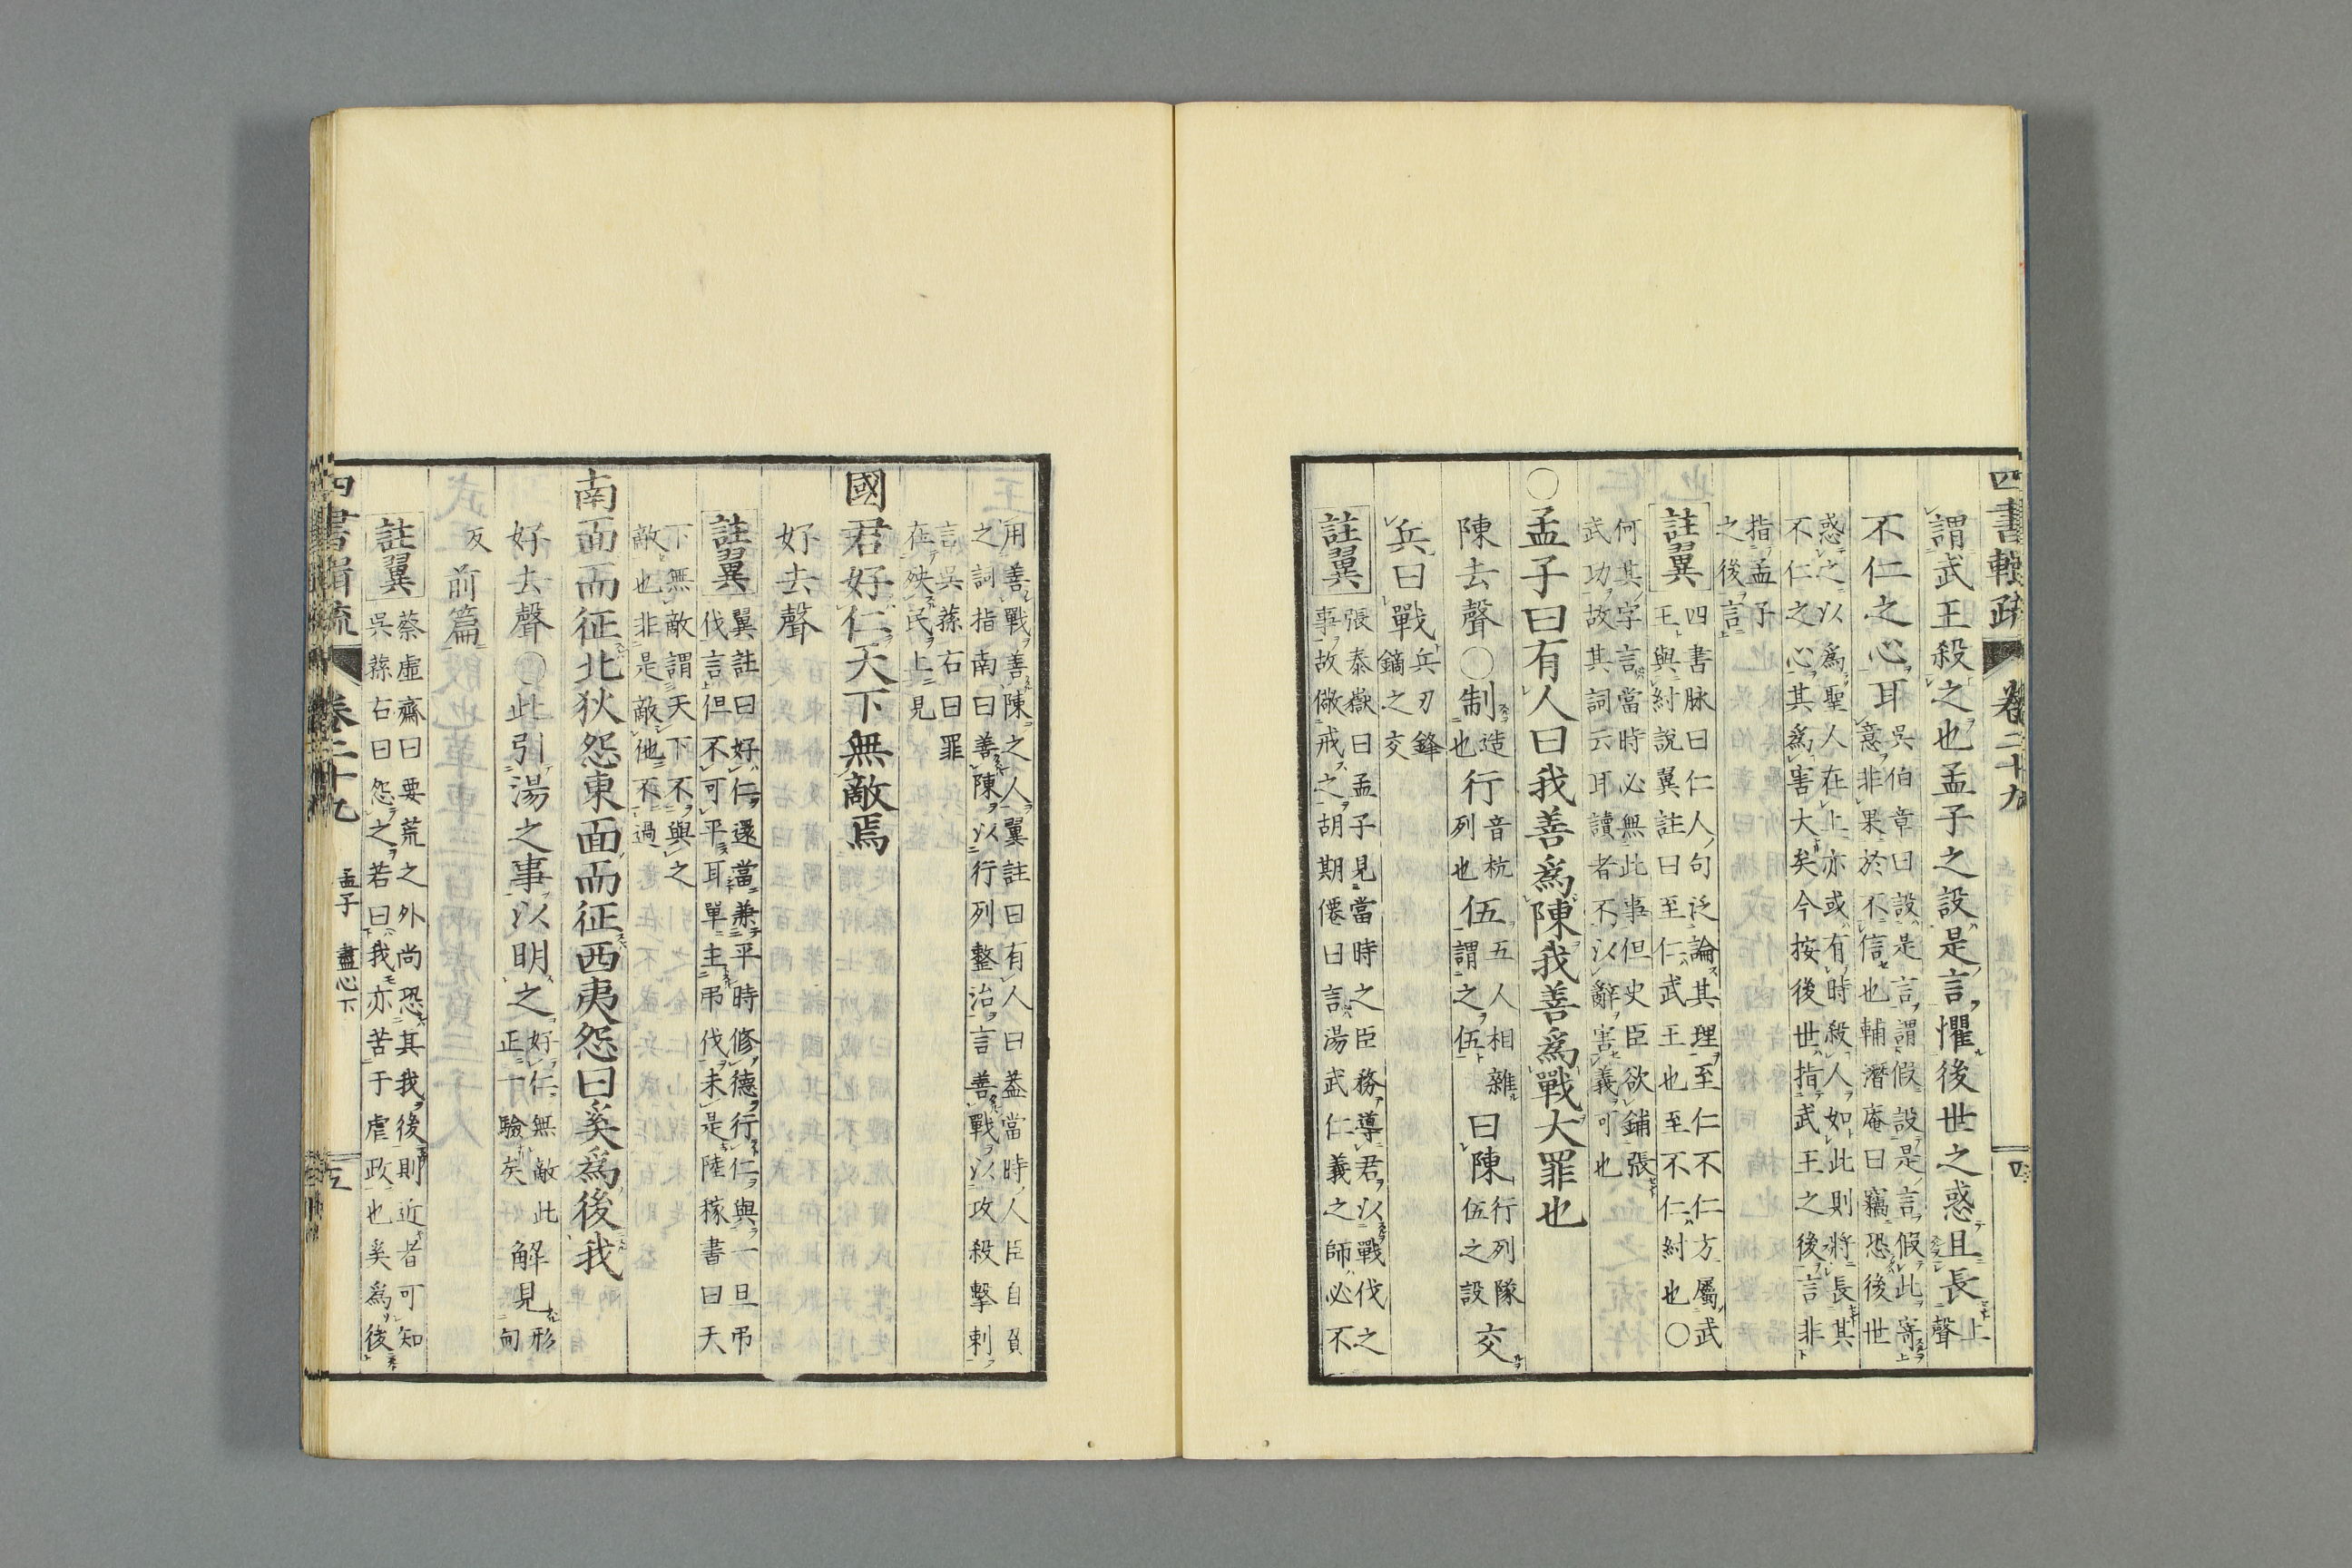 四書輯疏 卷二十九 四
謂武王殺之也孟子之設是言懼後世之惑且長上聲
不仁之心耳吳伯章曰設是言謂假設是言假此寄
意非果於不信也輔潛庵曰竊恐後世
惑之以爲聖人在上亦或有時殺人如此則將長其
不仁之心其爲害大矣今按後世指武王之後言非
指孟子
之後言
註翼四書脉曰仁人句泛論其理至仁不仁方屬武
王與紂說翼註曰至仁武王也至不仁紂也○
何其字言當時必無此事但史臣欲鋪張
武功故其詞云耳讀者不以辭害義可也
○孟子曰有人曰我善爲陳我善爲戰大罪也
陳去聲○制造
也行音杭
列也伍五人相雜
謂之伍曰陳行列隊
伍之設交
兵曰戰兵刃鋒
鏑之交
註翼張泰嶽曰孟子見當時之臣務導君以戰伐之
事故儆戒之胡期僊曰言湯武仁義之師必不
用善戰善陳之人翼註曰有人曰葢當時人臣自負
之詞指南曰善陳以行列整治言善戰以攻殺擊刺
言吳蓀右曰罪
在殃民上見
國君好仁天下無敵焉
好去聲
註翼翼註曰好仁還當兼平時修德行仁與一旦弔
伐言但不可平耳單主弔伐未是陸稼書曰天
下無敵謂天下不與之
敵也非是敵他不過
南面而征北狄怨東面而征西夷怨曰奚爲後我
好去聲○此引湯之事以明之好仁無敵此
正一驗矣解見形甸
反前篇
註翼蔡虛齋曰要荒之外尚恐其我後則近者可知
吳蓀右曰怨之若曰我亦苦于虐政也奚爲後
四書輯疏 卷二十九 孟子 盡心下 五